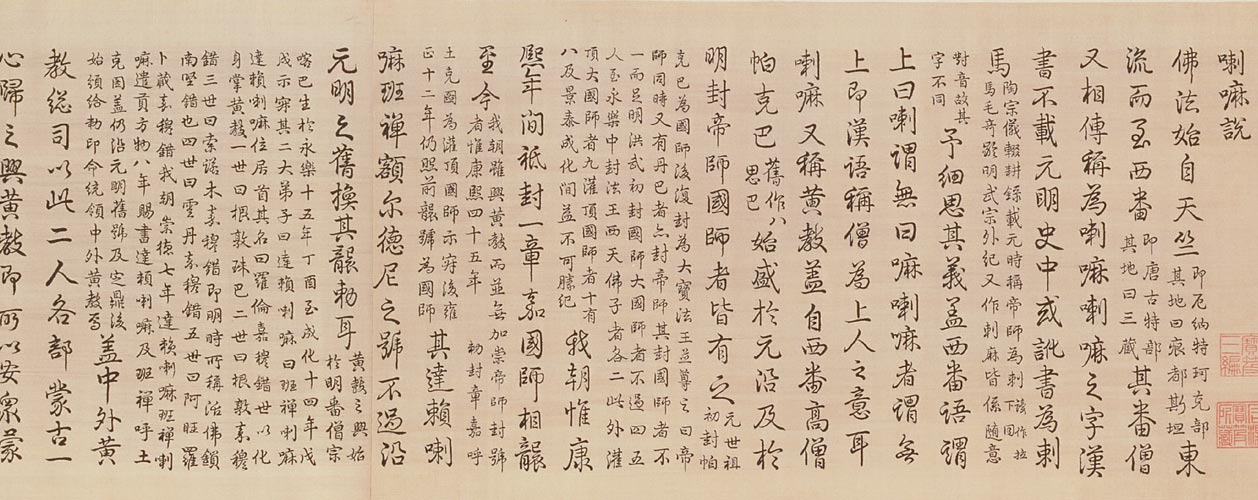 喇嘛說
佛法始自天竺即厄納特珂克部其地曰痕都斯坦東
流而至西番即唐古特部其地曰三藏其番僧
又相傳稱為喇嘛喇嘛之字漢
書不載元明史中或訛書為剌
馬陶宗儀輟耕錄載元時稱帝師為剌讀作拉下同馬毛奇齡明武宗外紀又作剌麻皆係隨意
對音故其字不同予細思其義盖西番語謂
上曰喇謂無曰嘛喇嘛者謂無
上即漢語稱僧為上人之意耳
喇嘛又稱黃教盖自西番高僧
帕克巴舊作八思巴始盛於元沿及於
明封帝師國師者皆有之元世祖初封帕
克巴為國師後復封為大寶法王並尊之曰帝
師同時又有丹巴者亦封帝師其封國師者不
一而足明洪武初封國師大國師者不過四五
人至永樂中封法王西天佛子者各二此外灌
頂大國師者九灌頂國師者十有八及景泰成化間益不可勝紀我朝惟康
熙年間祇封一章嘉國師相襲
至今我朝雖興黃教而並無加崇帝師封號者惟康熙四十五年勅封章嘉呼
土克圖為灌頂國師示寂後雍正十二年仍照前襲號為國師其達賴喇
嘛班禪額尔德尼之號不過沿
元明之舊換其襲勅耳黃教之興始於明番僧宗
喀巴生於永樂十五年丁酉至成化十四年戊
戌示寂其二大弟子曰達賴喇嘛曰班禪喇嘛
達賴喇嘛位居首其名曰羅倫嘉穆錯世以化
身掌黃教一世曰根敦珠巴二世曰根敦嘉穆
錯三世曰索諾木嘉穆錯即明時所稱活佛鎖
南堅錯也四世曰雲丹嘉穆錯五世曰阿旺羅
卜藏嘉穆錯我朝崇德七年達賴喇嘛班禪喇
嘛遣貢方物八年賜書達賴喇嘛及班禪呼土
克圖盖仍沿元明舊號及定鼎後始頒給勅印命統領中外黃教焉盖中外黃
教總司以此二人各部蒙古一
心歸之興黃教即所以安衆蒙